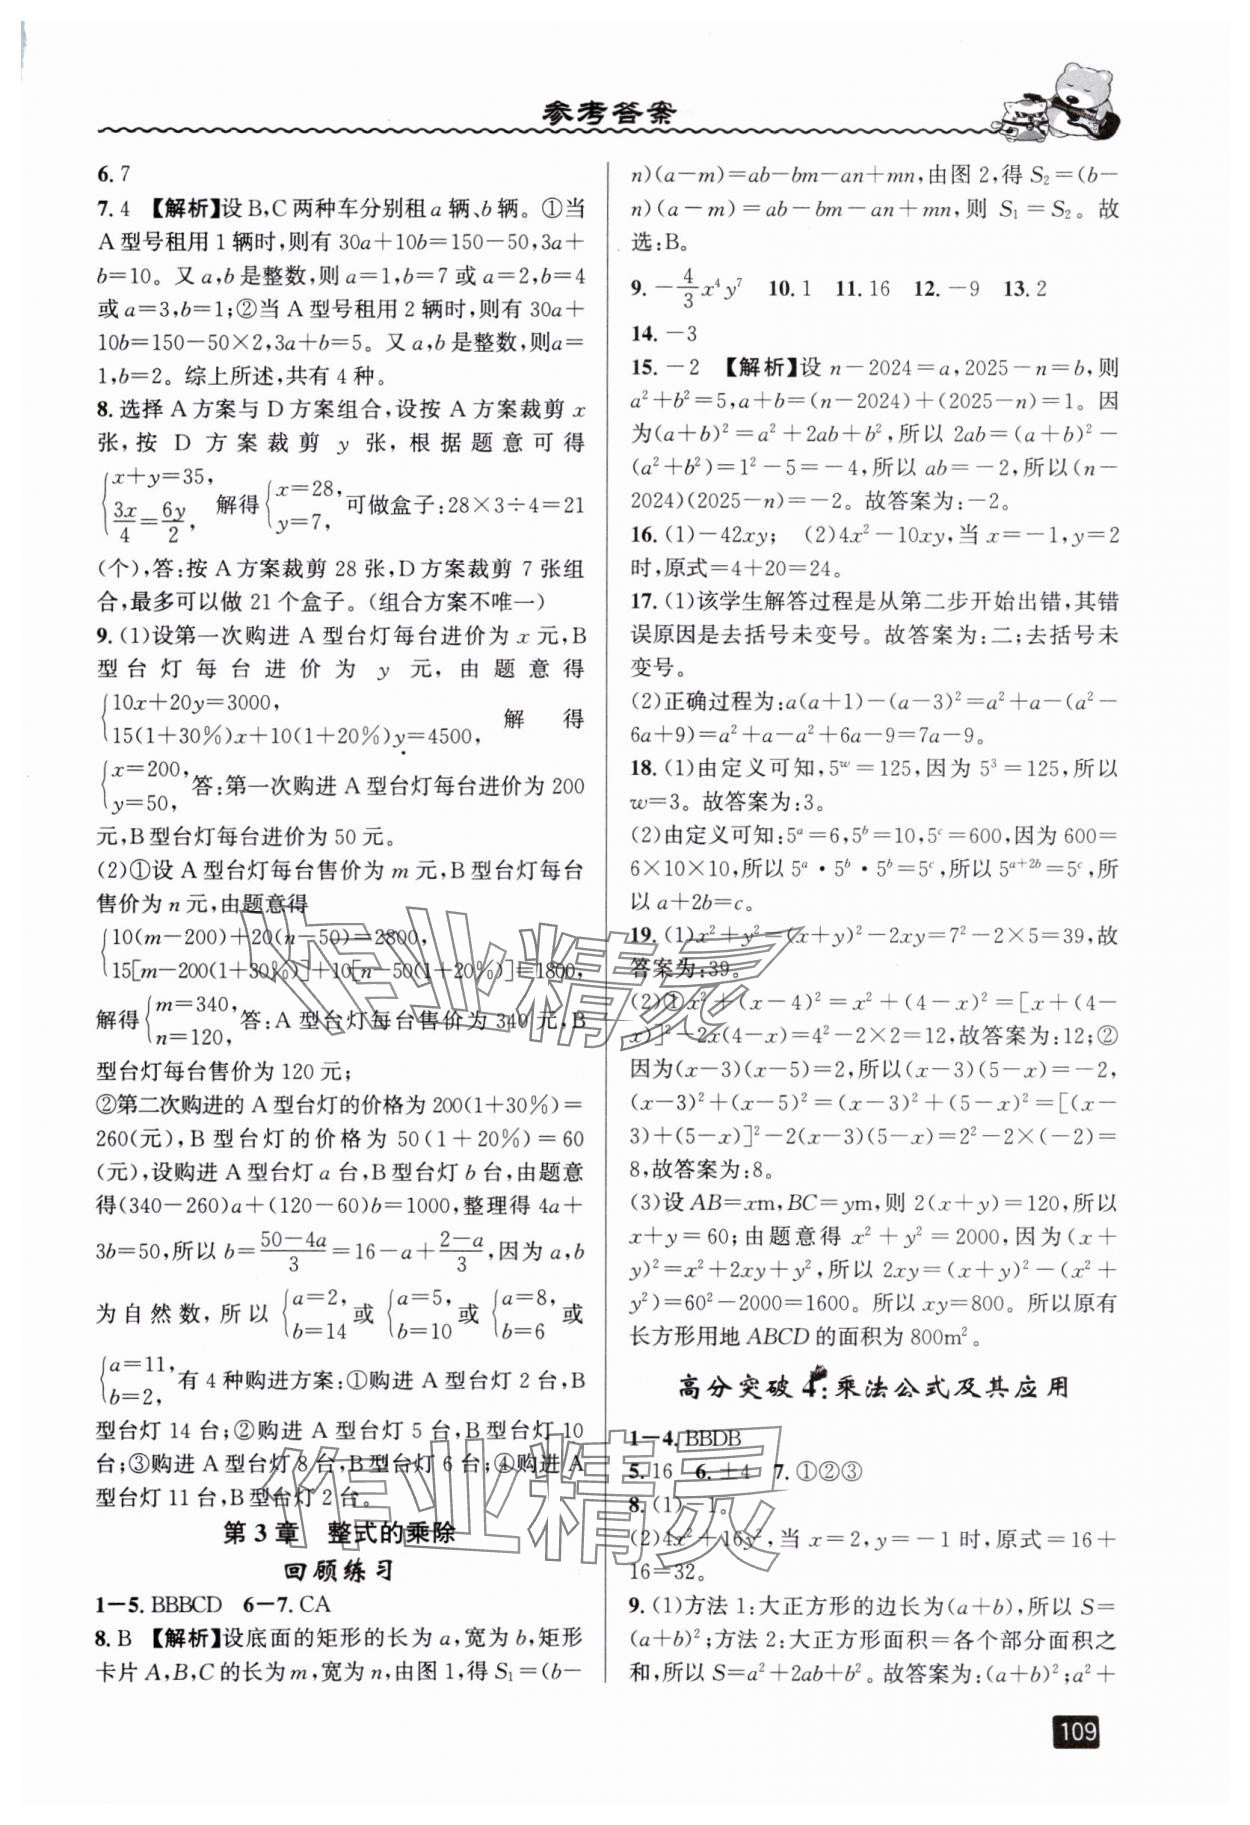 参考答案
6. 7
7. 4 【解析】设 B,C 两种车分别租 a 辆、b 辆。①当
A 型号租用 1 辆时,则有 30a+10b=150-50,3a+
b=10。又 a,b 是整数,则a=1,b=7 或 a=2,b=4
或 a=3,b=1;②当 A 型号租用 2 辆时,则有 30a+
10b=150-50×2,3a+b=5。又 a,b 是整数,则a=
1,b=2。综上所述,共有 4 种。
8. 选择 A 方案与 D 方案组合,设按 A 方案裁剪 x
张,按 D 方案裁剪 y 张,根据题意可得
{x+y=35, 3x/4=6y/2, 解得{x=28, y=7, 可做盒子:28×3÷4=21
(个),答:按 A 方案裁剪 28 张,D 方案裁剪 7 张组
合,最多可以做 21 个盒子。(组合方案不唯一)
9. (1)设第一次购进 A 型台灯每台进价为 x 元,B
型台灯每台进价为 y 元,由题意得
{10x+20y=3000, 15(1+30%)x+10(1+20%)y=4500, 解得
{x=200, y=50, 答:第一次购进 A 型台灯每台进价为 200
元,B 型台灯每台进价为 50 元。
(2)①设 A 型台灯每台售价为 m 元,B 型台灯每台
售价为 n 元,由题意得
{10(m-200)+20(n-50)=2800, 15[m-200(1+30%)]+10[n-50(1+20%)]=1800,
解得{m=340, n=120, 答:A 型台灯每台售价为 340 元,B
型台灯每台售价为 120 元;
②第二次购进的 A 型台灯的价格为 200(1+30%)=
260(元),B 型台灯的价格为 50(1+20%)=60
(元),设购进 A 型台灯 a 台,B 型台灯 b 台,由题意
得(340-260)a+(120-60)b=1000,整理得 4a+
3b=50,所以 b=(50-4a)/3=16-a+(2-a)/3,因为 a,b
为自然数,所以{a=2, b=14 或{a=5, b=10 或{a=8, b=6 或
{a=11, b=2, 有 4 种购进方案:①购进 A 型台灯 2 台,B
型台灯 14 台;②购进 A 型台灯 5 台,B 型台灯 10
台;③购进 A 型台灯 8 台,B 型台灯 6 台;④购进 A
型台灯 11 台,B 型台灯 2 台。
第 3 章 整式的乘除
回顾练习
1-5. BBBCD 6-7. CA
8. B 【解析】设底面的矩形的长为 a,宽为 b,矩形
卡片 A,B,C 的长为 m,宽为 n,由图 1,得 S₁=(b-
n)(a-m)=ab-bm-an+mn,由图 2,得 S₂=(b-
n)(a-m)=ab-bm-an+mn,则 S₁=S₂。故
选:B。
9. -4/3x⁴y⁷ 10. 1 11. 16 12. -9 13. 2
14. -3
15. -2 【解析】设 n-2024=a,2025-n=b,则
a²+b²=5,a+b=(n-2024)+(2025-n)=1。因
为(a+b)²=a²+2ab+b²,所以 2ab=(a+b)²-
(a²+b²)=1²-5=-4,所以 ab=-2,所以(n-
2024)(2025-n)=-2。故答案为:-2。
16. (1)-42xy; (2)4x²-10xy,当 x=-1,y=2
时,原式=4+20=24。
17. (1)该学生解答过程是从第二步开始出错,其错
误原因是去括号未变号。故答案为:二;去括号未
变号。
(2)正确过程为:a(a+1)-(a-3)²=a²+a-(a²-
6a+9)=a²+a-a²+6a-9=7a-9。
18. (1)由定义可知,5ʷ=125,因为 5³=125,所以
w=3。故答案为:3。
(2)由定义可知:5ᵃ=6,5ᵇ=10,5ᶜ=600,因为 600=
6×10×10,所以 5ᵃ·5ᵇ·5ᵇ=5ᶜ,所以 5ᵃ⁺²ᵇ=5ᶜ,所
以 a+2b=c。
19. (1)x²+y²=(x+y)²-2xy=7²-2×5=39,故
答案为:39。
(2)①x²+(x-4)²=x²+(4-x)²=[x+(4-
x)]²-2x(4-x)=4²-2×2=12,故答案为:12;②
因为(x-3)(x-5)=2,所以(x-3)(5-x)=-2,
(x-3)²+(x-5)²=(x-3)²+(5-x)²=[(x-
3)+(5-x)]²-2(x-3)(5-x)=2²-2×(-2)=
8,故答案为:8。
(3)设 AB=xm,BC=ym,则 2(x+y)=120,所以
x+y=60;由题意得 x²+y²=2000,因为(x+
y)²=x²+2xy+y²,所以 2xy=(x+y)²-(x²+
y²)=60²-2000=1600。所以 xy=800。所以原有
长方形用地 ABCD 的面积为 800m²。
高分突破 4:乘法公式及其应用
1-4. BBDB
5. 16 6. ±4 7. ①②③
8. (1)-1。
(2)4x²+16y²,当 x=2,y=-1 时,原式=16+
16=32。
9. (1)方法 1:大正方形的边长为(a+b),所以 S=
(a+b)²;方法 2:大正方形面积=各个部分面积之
和,所以 S=a²+2ab+b²。故答案为:(a+b)²;a²+
109
作业精灵
作业精灵